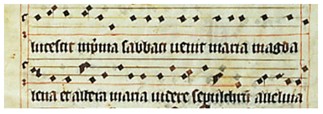 lucescit in prima sabbati venit maria magda
lena et altera maria videre sepulchrum alleluia